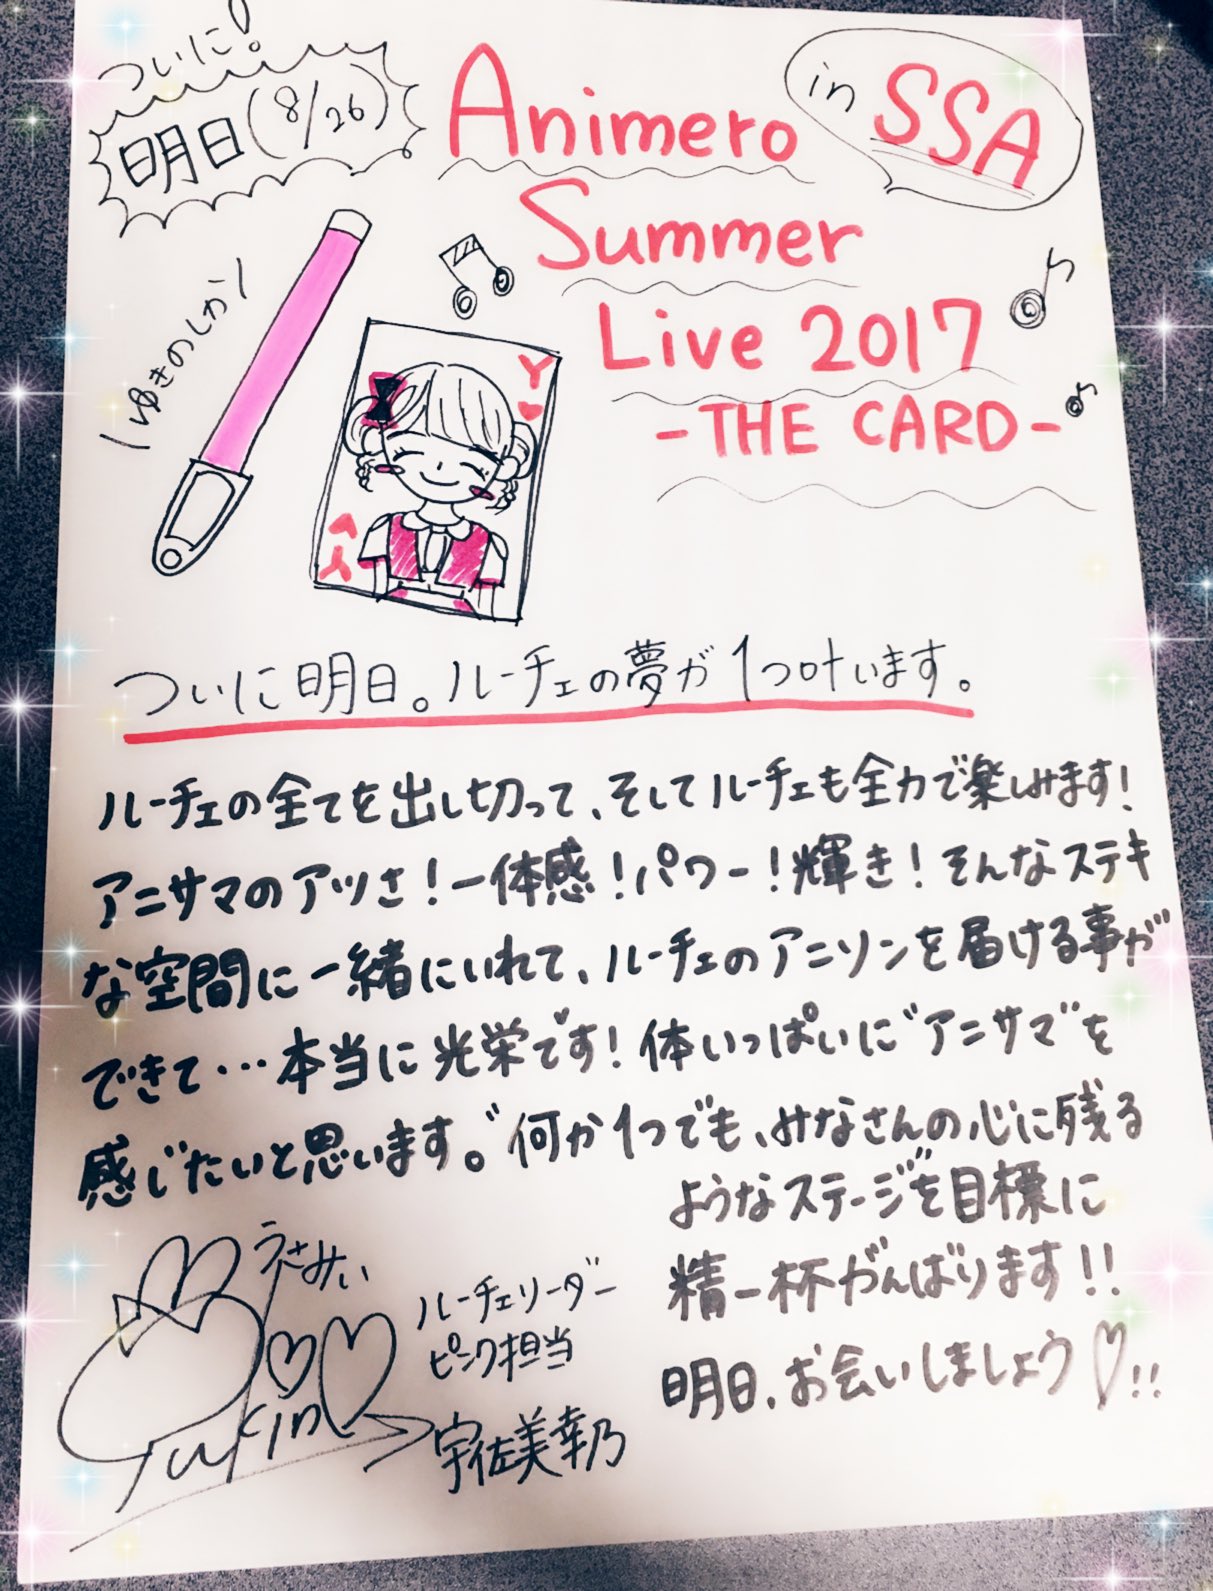 ついに!
明日(8/26)
Animero
Summer
Live 2017
-THE CARD-
in SSA
\ゆきのしか/
Y
Y
ついに明日。ルーチェの夢が1つ叶います。
ルーチェの全てを出し切って、そしてルーチェも全力で楽しみます!
アニサマのアツさ!一体感!パワー!輝き!そんなステキ
な空間に一緒にいれて、ルーチェのアニソンを届ける事が
できて…本当に光栄です!体いっぱいに"アニサマ"を
感じたいと思います。"何か1つでも、みなさんの心に残る
ようなステージ"を目標に
精一杯がんばります!!
明日、お会いしましょう♡!!
うさみぃ
Yukino
ルーチェリーダー
ピンク担当
宇佐美幸乃